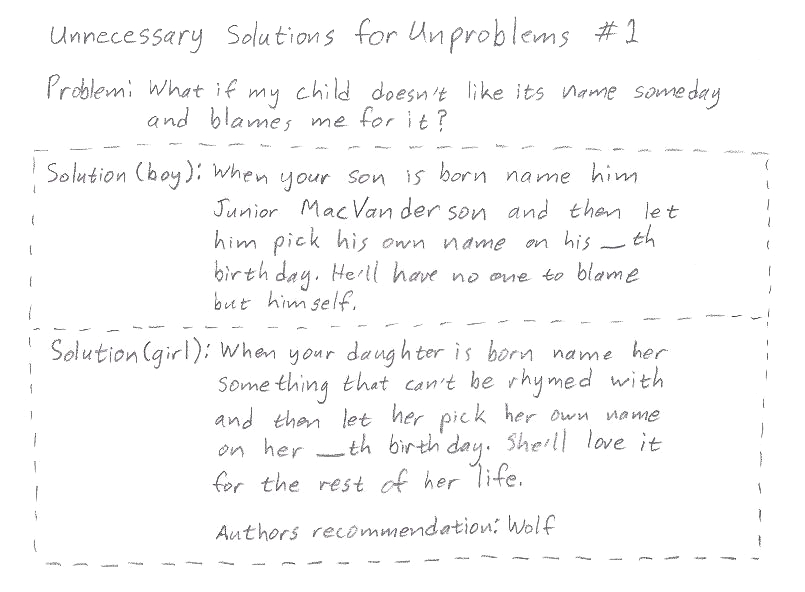 Unnecessary Solutions for Unproblems #1
Problem: What if my child doesn't like its name someday
and blames me for it?
Solution (boy): When your son is born name him
Junior MacVanderson and then let
him pick his own name on his __th
birthday. He'll have no one to blame
but himself.
Solution (girl): When your daughter is born name her
something that can't be rhymed with
and then let her pick her own name
on her __th birthday. She'll love it
for the rest of her life.
Authors recommendation: Wolf